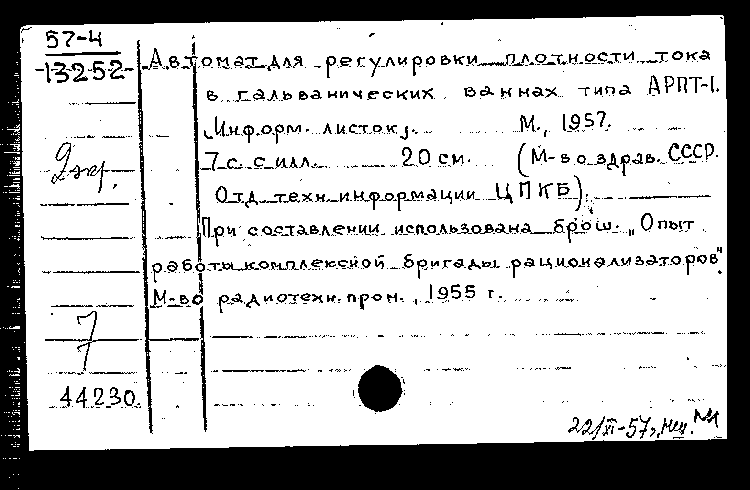 57-4
13252
Автомат для регулировки плотности тока
в гальванических ваннах типа АРПТ-I.
(Информ. листок).  М., 1957.
7 с. с илл.  20 см.  (М-во здрав. СССР.
2 экз.
Отд техн. информации ЦПКБ).
При составлении использована брош. „Опыт
работы комплексной бригады рационализаторов".
М-во радиотехн. пром., 1955 г.
7
44230.
22/XI-57г,